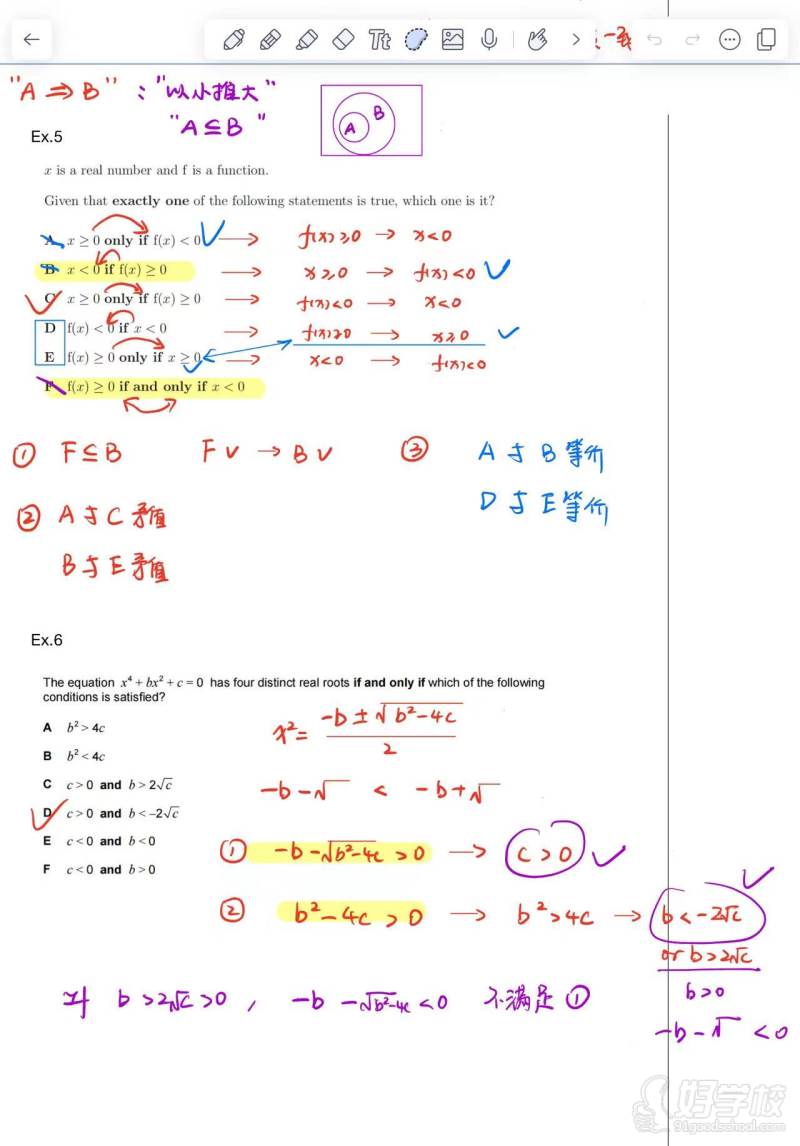 "A ⇒ B" : "以小推大"
"A ⊆ B"
A B
Ex.5
x is a real number and f is a function.
Given that exactly one of the following statements is true, which one is it?
A x ≥ 0 only if f(x) < 0 → f(x) ≥ 0 → x < 0
B x < 0 if f(x) ≥ 0 → x ≥ 0 → f(x) < 0
C x ≥ 0 only if f(x) ≥ 0 → f(x) < 0 → x < 0
D f(x) < 0 if x < 0 → f(x) ≥ 0 → x ≥ 0
E f(x) ≥ 0 only if x ≥ 0 → x < 0 → f(x) < 0
F f(x) ≥ 0 if and only if x < 0
① F ⊆ B F ∨ → B ∨ ③ A 与 B 等价
② A 与 C 矛盾 D 与 E 等价
B 与 E 矛盾
Ex.6
The equation x⁴ + bx² + c = 0 has four distinct real roots if and only if which of the following
conditions is satisfied?
A b² > 4c
B b² < 4c
C c > 0 and b > 2√c
D c > 0 and b < −2√c
E c < 0 and b < 0
F c < 0 and b > 0
x² = (-b ± √(b²-4c)) / 2
-b - √ < -b + √
① -b - √(b²-4c) > 0 → c > 0
② b² - 4c > 0 → b² > 4c → b < -2√c
or b > 2√c
b > 0
-b - √ < 0
对 b > 2√c > 0 , -b - √(b²-4c) < 0 不满足 ①
好学校
91goodschool.com